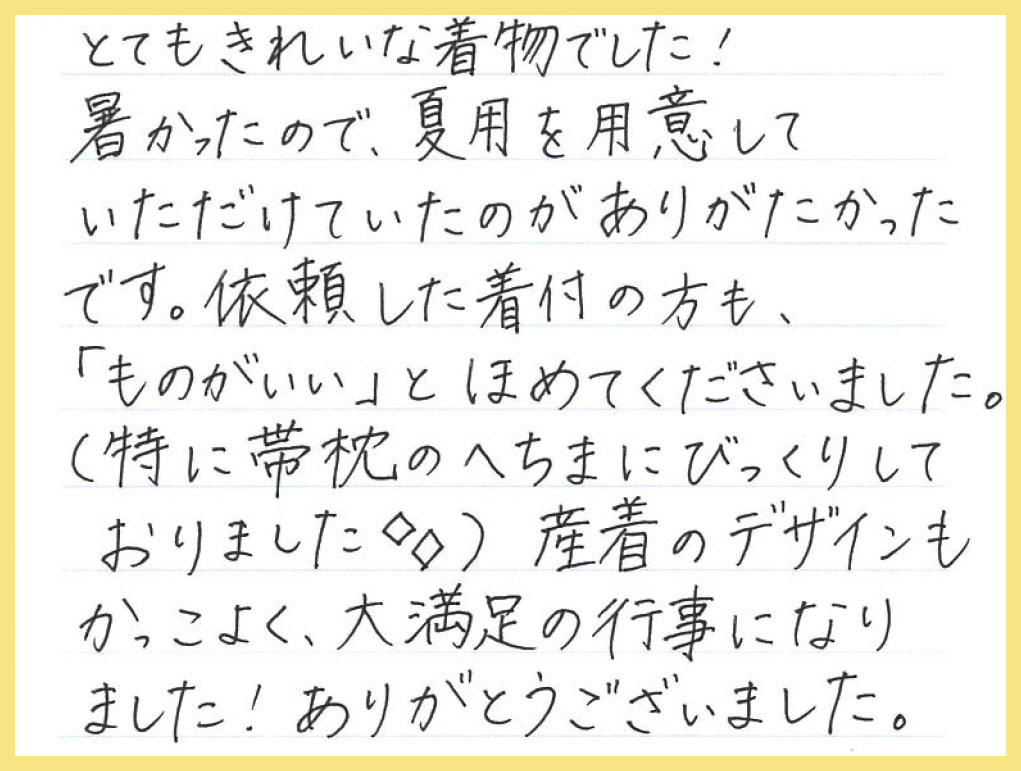 とてもきれいな着物でした！
暑かったので、夏用を用意して
いただけていたのがありがたかった
です。依頼した着付の方も、
「ものがいい」とほめてくださいました。
（特に帯枕のへちまにびっくりして
おりました◇◇）産着のデザインも
かっこよく、大満足の行事になり
ました！ありがとうございました。